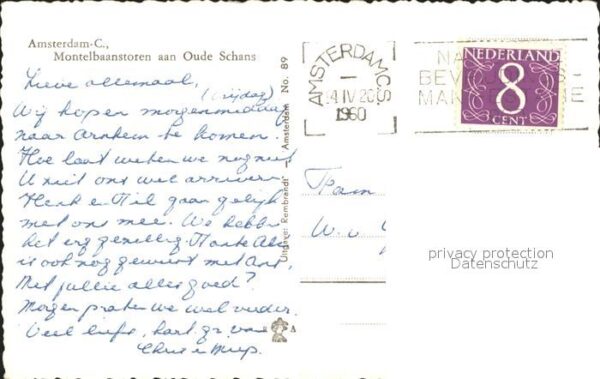 Amsterdam-C.,
Montelbaanstoren aan Oude Schans
Lieve allemaal,
(vrijdag)
Wij hopen morgenmiddag
naar Arnhem te komen.
Hoe laat weten we nog niet
U ziet ons wel
Henk en gaan gelijk
met ons mee. We hebben
het erg gezellig. Tante
is ook nog geweest met
Met jullie alles goed?
Morgen praten we wel verder.
Veel liefs, hart. gr. van
Chris en Miep.
Uitgave: Rembrandt - Amsterdam No. 89
A
AMSTERDAM CS
14 IV 20
1960
NA
BEV S-
MAN E
NEDERLAND
8
CENT
Fam
W. v
privacy protection
Datenschutz